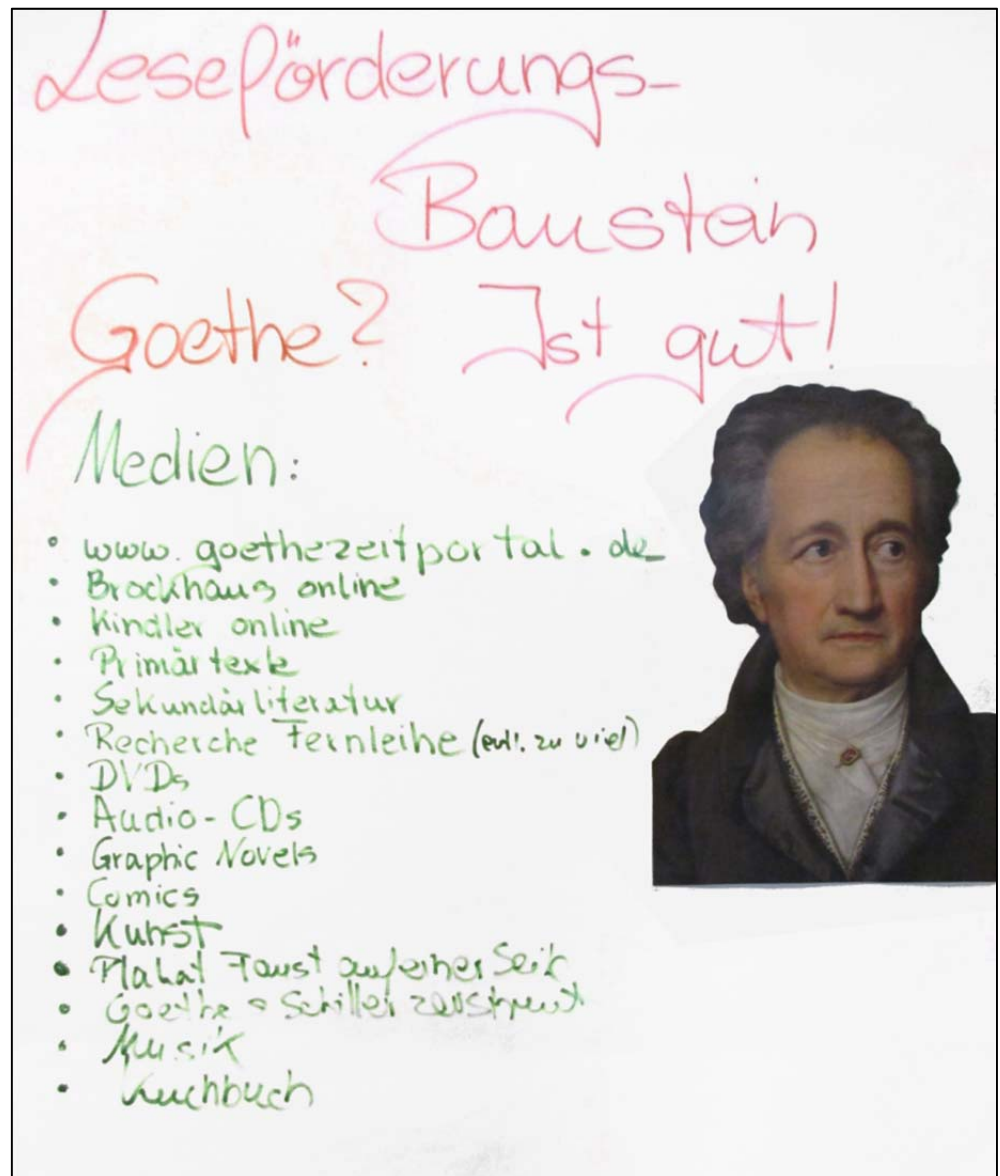 Leseförderungs-
Baustein
Goethe? Ist gut!
Medien:
• www.goethezeitportal.de
• Brockhaus online
• Kindler online
• Primärtexte
• Sekundärliteratur
• Recherche Fernleihe (evtl. zu viel)
• DVDs
• Audio-CDs
• Graphic Novels
• Comics
• Kunst
• Plakat Faust auf einer Seite
• Goethe Schiller
• Musik
• Kochbuch